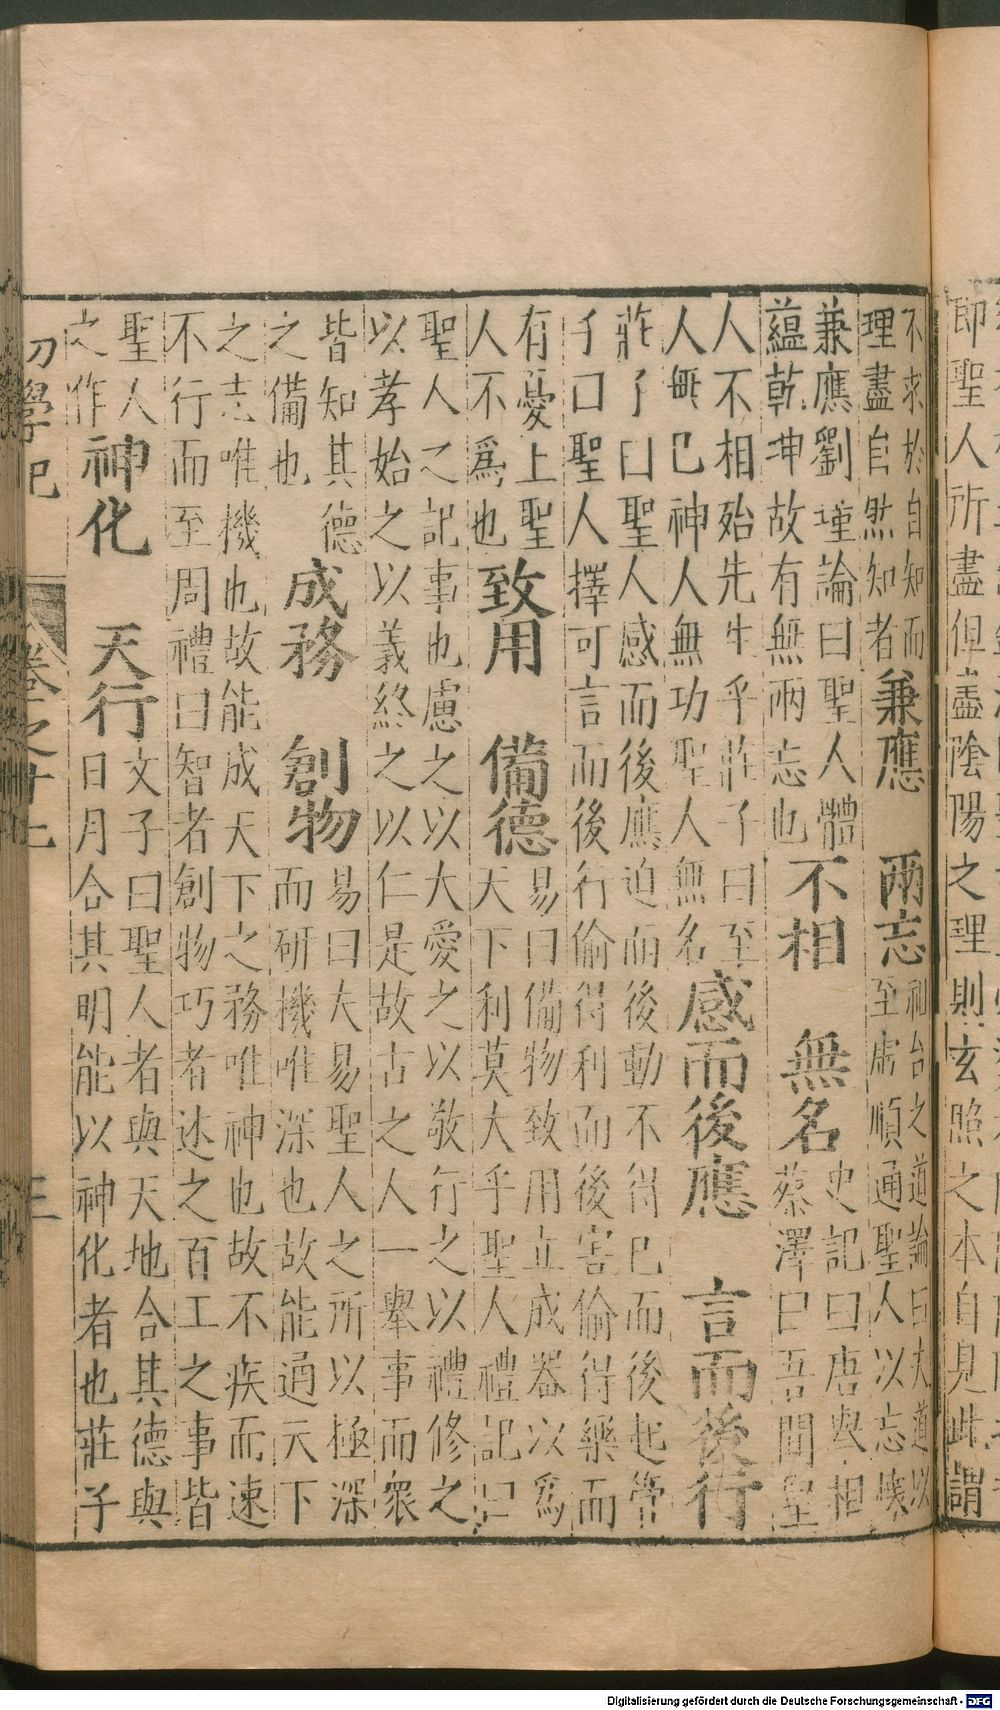 即聖人所盡但盡陰陽之理則玄照之本自見此謂
不求於自知而
理盡自然知者
兼應　兩忘
祖台之道論曰大道以
至虛順通聖人以忘懷
兼應劉瑾論曰聖人體
蘊乾坤故有無兩忘也
不相　無名
史記曰唐與相
蔡澤曰吾聞聖
人不相殆先生乎莊子曰至
人無已神人無功聖人無名
感而後應　言而後行
莊子曰聖人感而後應迫而後動不得已而後起管
子曰聖人擇可言而後行偷得利而後害偷得樂而
有憂上聖
人不爲也
致用　備德
易曰備物致用立成器以爲
天下利莫大乎聖人禮記曰
聖人之記事也慮之以大愛之以敬行之以禮修之
以孝始之以義終之以仁是故古之人一舉事而衆
皆知其德
之備也
成務　創物
易曰大易聖人之所以極深
而研機唯深也故能通天下
之志唯機也故能成天下之務唯神也故不疾而速
不行而至周禮曰智者創物巧者述之百工之事皆
聖人
之作
神化　天行
文子曰聖人者與天地合其德與
日月合其明能以神化者也莊子
初學記　卷之十七　三
Digitalisierung gefördert durch die Deutsche Forschungsgemeinschaft - DFG